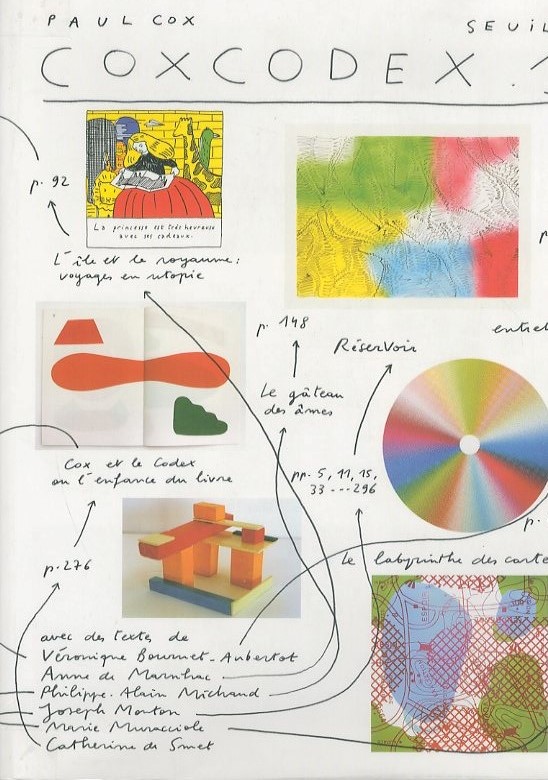 PAUL COX
SEUIL
COXCODEX 1
p. 92
La princesse est très heureuse
avec ses cadeaux.
L'île et le royaume :
voyages en utopie
p. 148
Réservoir
entret
Le gâteau
des âmes
Cox et le Codex
ou l'enfance du livre
pp. 5, 11, 15,
33 --- 296
p.
p. 276
Le labyrinthe des carte
avec des textes de
Véronique Bouruet-Aubertot
Anne de Marnhac
Philippe-Alain Michaud
Joseph Morton
Marie Muracciole
Catherine de Smet